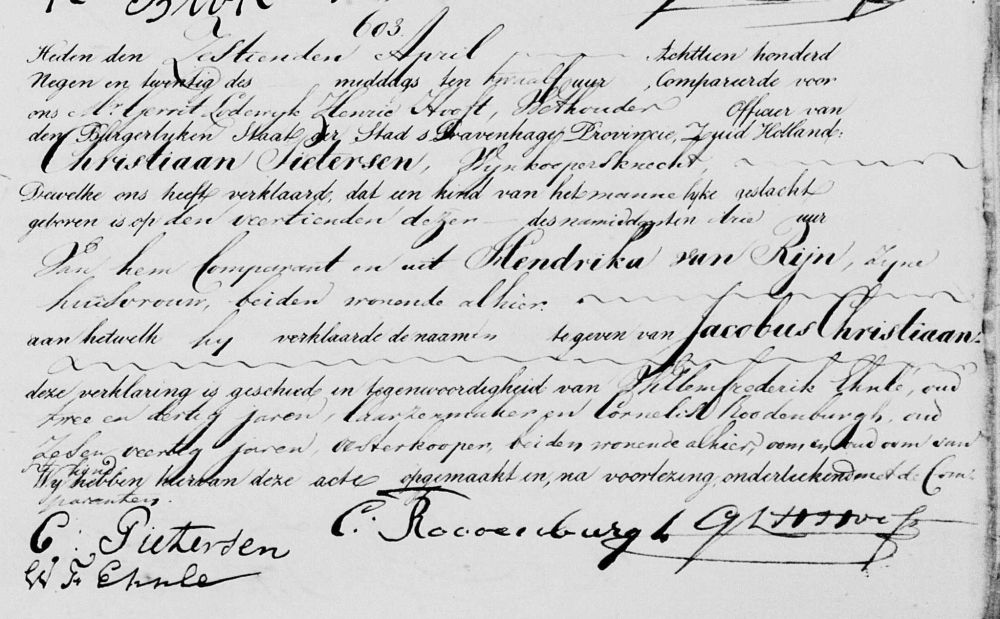 603.
Heden den Zestienden April Achttien honderd
Negen en twintig des middags ten twaalf uur Compareerde voor
ons Mr. Gerrit Lodewyk Henric Hooft, Wethouder Officier van
den Burgerlyken Staat der Stad s Gravenhage, Provincie, Zuid Holland:
Christiaan Pietersen, Wijnkoopersknecht,
Dewelke ons heeft verklaard, dat een kind van het mannelyke geslacht
geboren is op den veertienden dezer des namiddags ten drie uur
Van hem Comparant en uit Hendrika van Rijn, zyne
huisvrouw, beiden wonende alhier.
aan hetwelk hy verklaarde de naamen te geven van Jacobus Christiaan:
deze verklaring is geschied in tegenwoordigheid van Willem frederik Ehnle, oud
twee en dertig jaren, laarzenmaker en Cornelis Roodenburgh, oud
Zes en veertig jaren, oesterkooper, beiden wonende alhier, oom en oud oom van
het kind
Wy hebben hiervan deze acte opgemaakt en, na voorlezing, onderteekend met de Com-
paranten.
C: Pietersen C: Roodenburgh
W F Ehnle